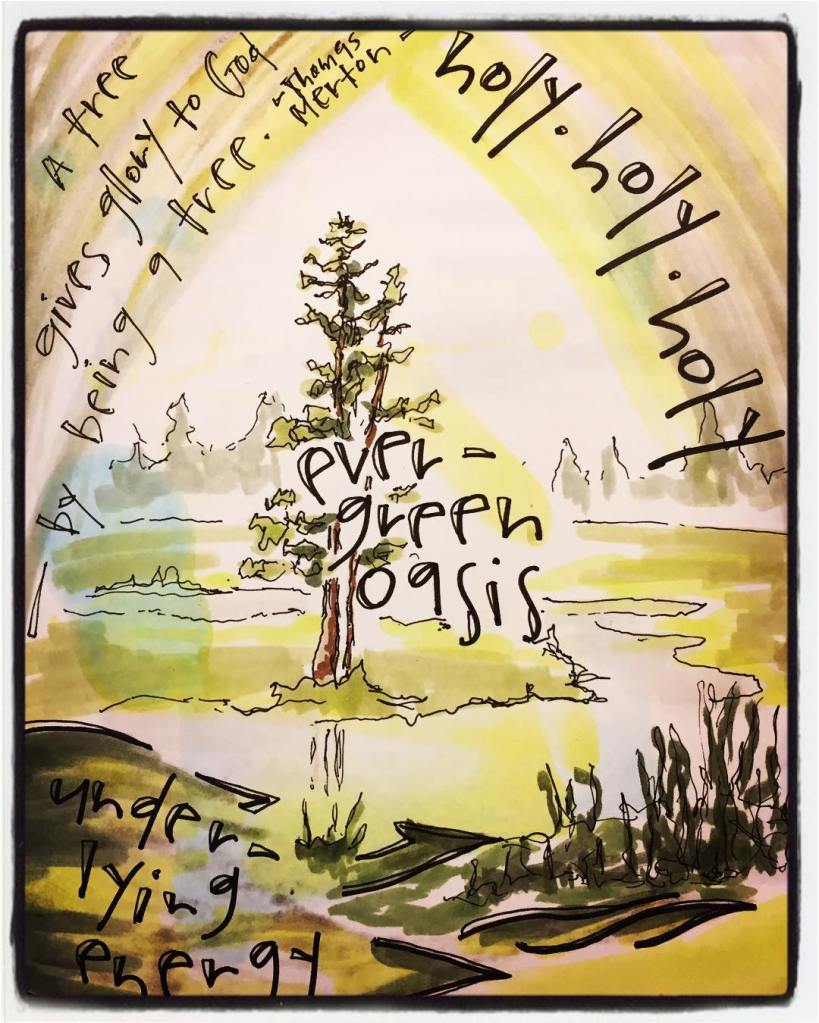 A tree
gives glory to God
by being a tree.
~Thomas
Merton-
holy. holy. holy
ever-
green
oasis
under-
lying
energy